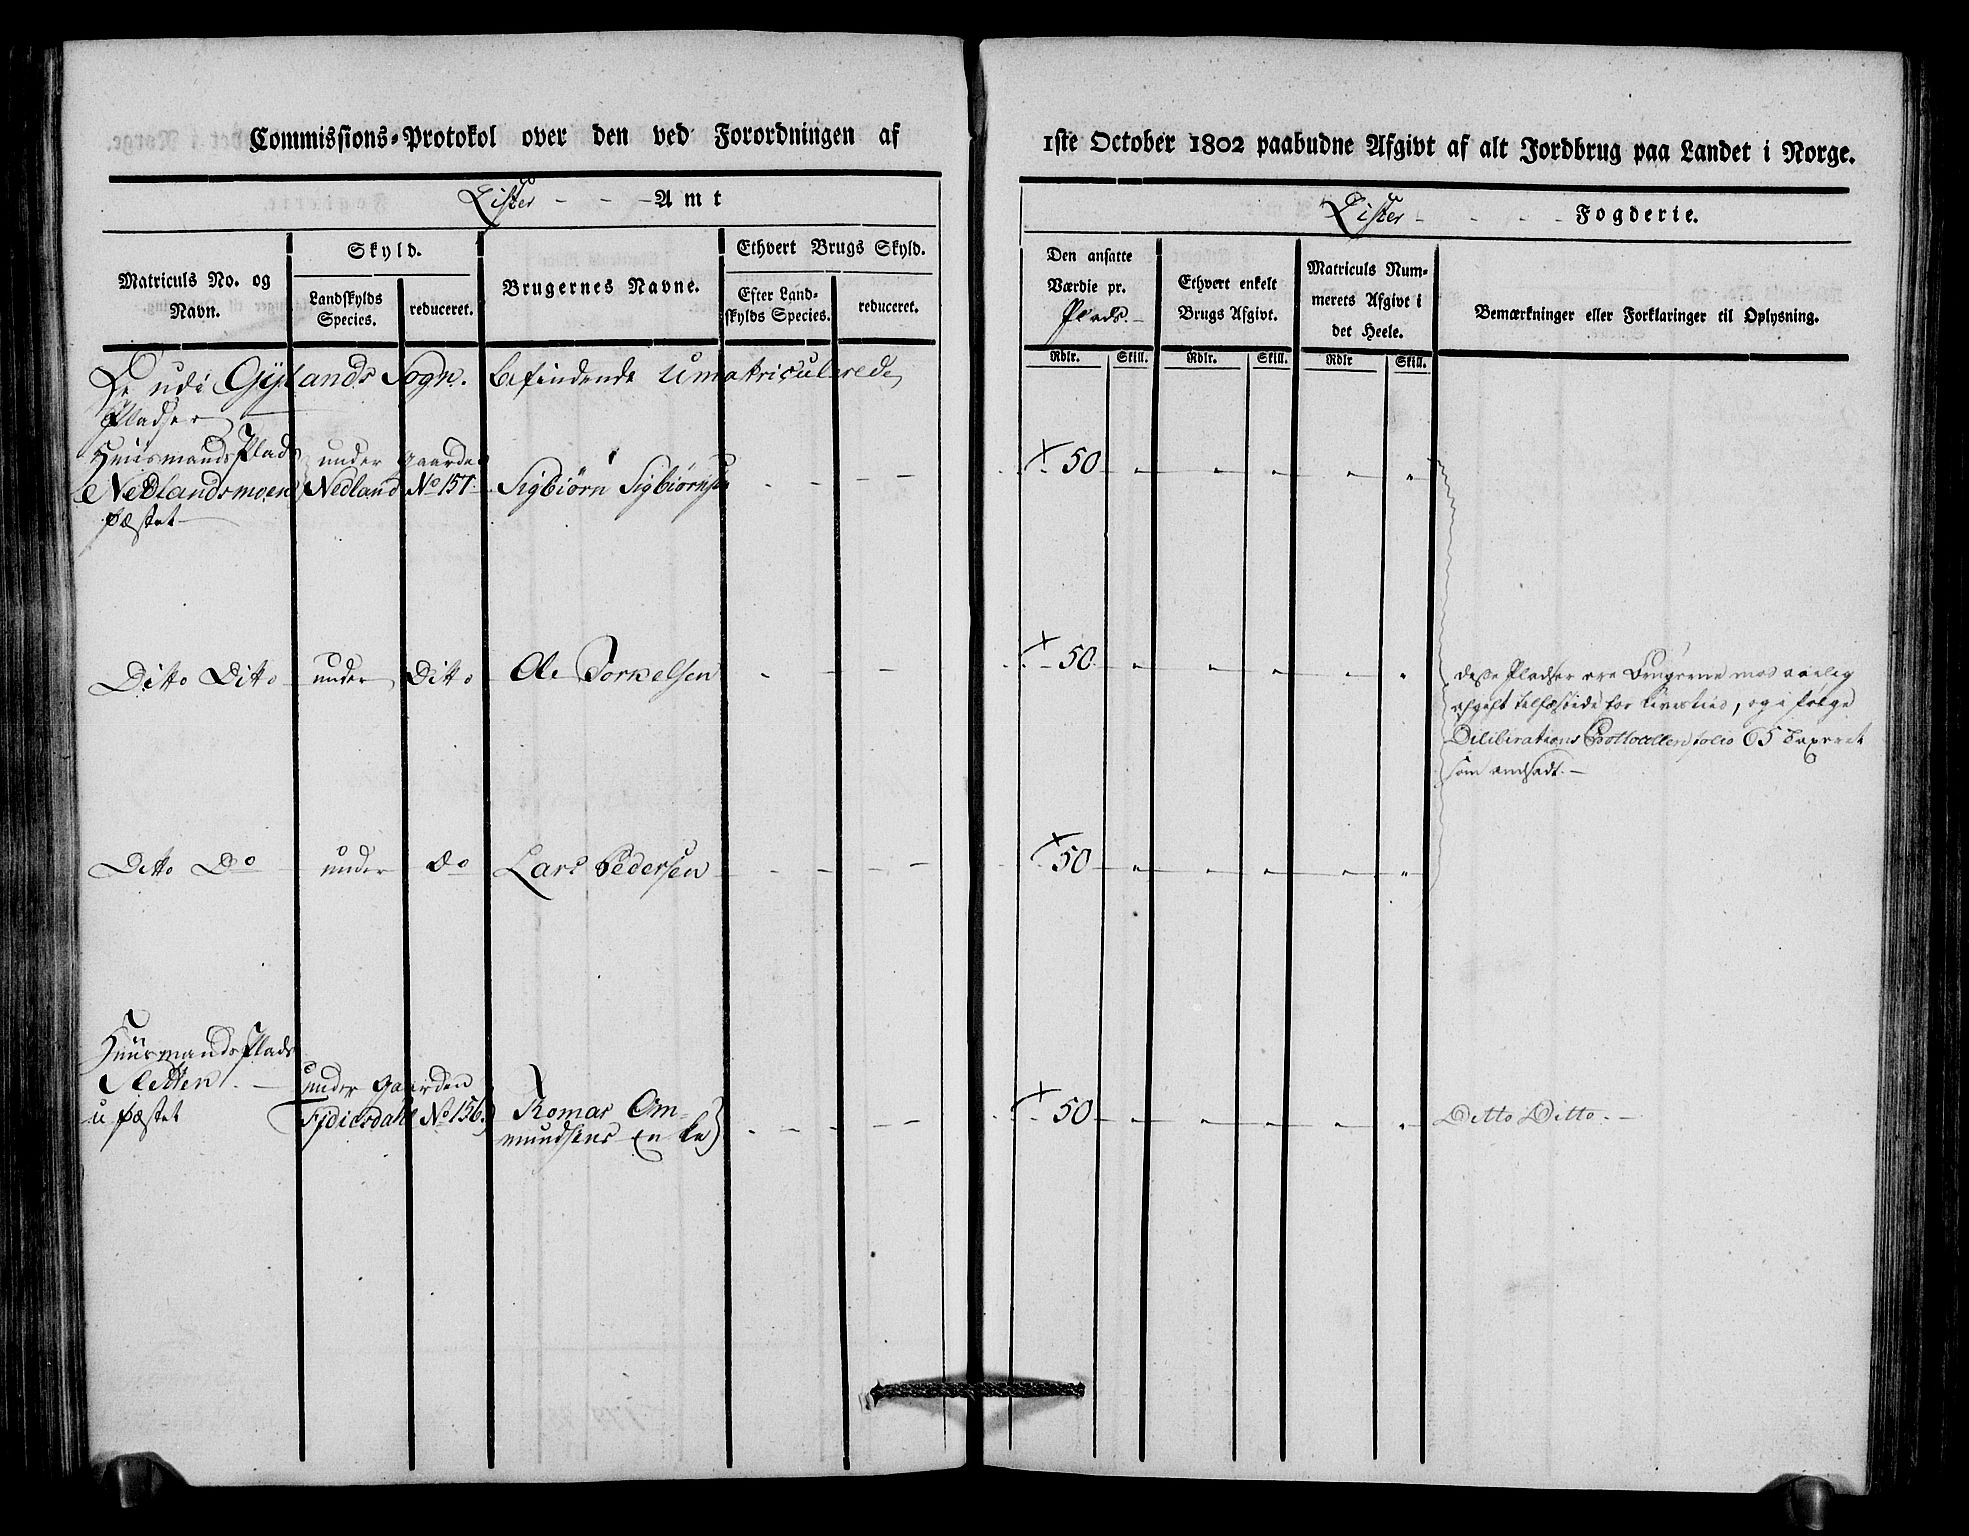 Commissions-Protokol over den ved Forordningen af
Lister - - - Amt
Matriculs No. og Navn.
Skyld.
Landskylds Species.
reduceret.
Brugernes Navne.
Ethvert Brugs Skyld.
Efter Landskylds Species.
reduceret.
De udi Gylands Sogn befindende Umatriculerede
Pladser
Huusmands Plads under Gaarden
Nedlandsmoen Nedland No 157 Sigbiørn Sigbiørnsen
fæstet
Ditto Ditto under Ditto Ole Torkelsen
Ditto Do under Do Lars Pedersen
Huusmands Plads
Sletten under Gaarden
u fæstet Fjdiesdahl No 156 Romar Om-
mundsens Enke
1ste October 1802 paabudne Afgivt af alt Jordbrug paa Landet i Norge.
Lister - - - Fogderie.
Den ansatte Værdie pr. Plads.
Ethvert enkelt Brugs Afgivt.
Matriculs Nummerets Afgivt i det Heele.
Bemærkninger eller Forklaringer til Oplysning.
Rdlr. Skill. Rdlr. Skill. Rdlr Skill.
50
50
desse Pladser ere Brugerne mod aarlig
afgift tilfæstede for Livstiid, og i følge
Deliberations Protocollen folio 65 taxeret
som andsadt.
50
50 Ditto Ditto.